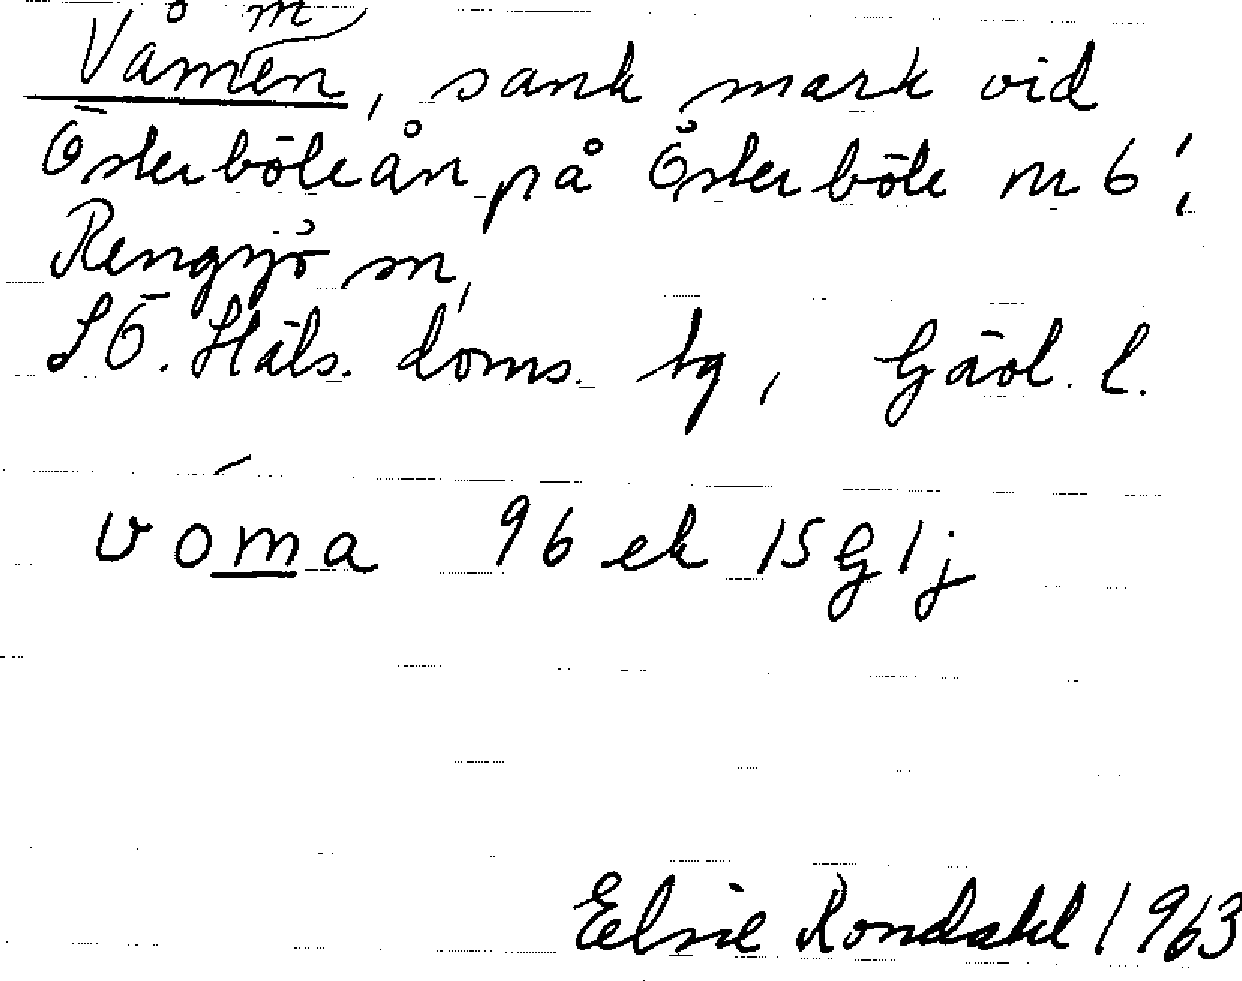 Våmmen, sank mark vid
Österböleån på Österböle nr 6,
Rengsjö sn,
SÖ. Häls. doms. hg, Gävl. l.
vóma 96 ek 15G1j
Elsie Rondahl 1963